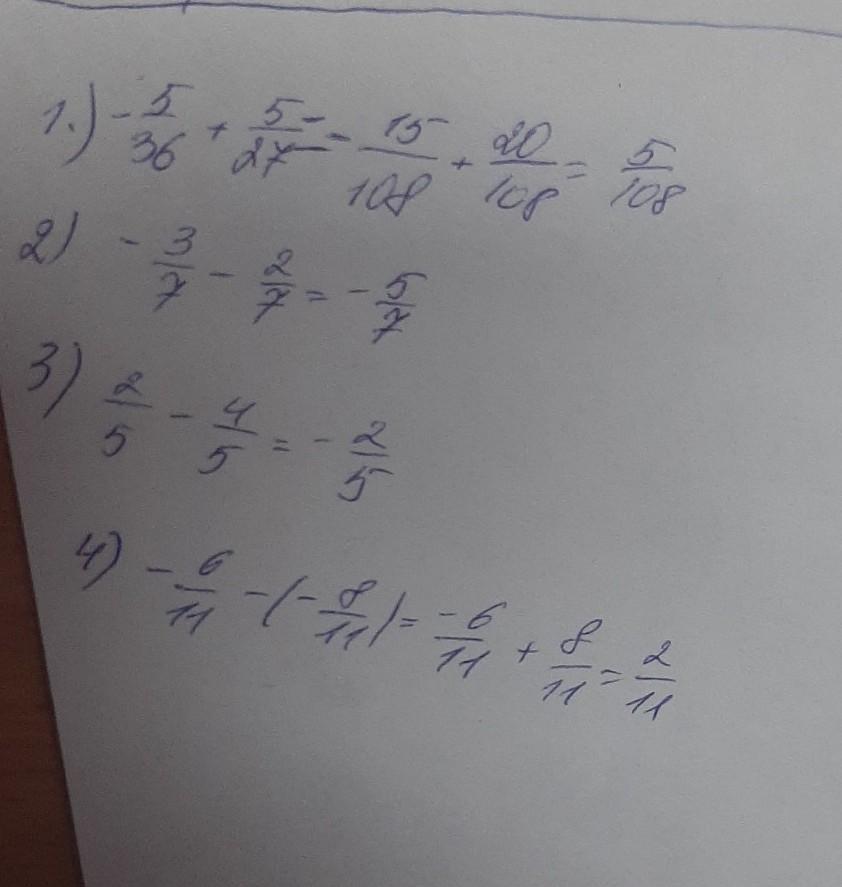 1.) -5/36 + 5/27 = -15/108 + 20/108 = 5/108
2) -3/7 - 2/7 = -5/7
3) 2/5 - 4/5 = -2/5
4) -6/11 - (-8/11) = -6/11 + 8/11 = 2/11